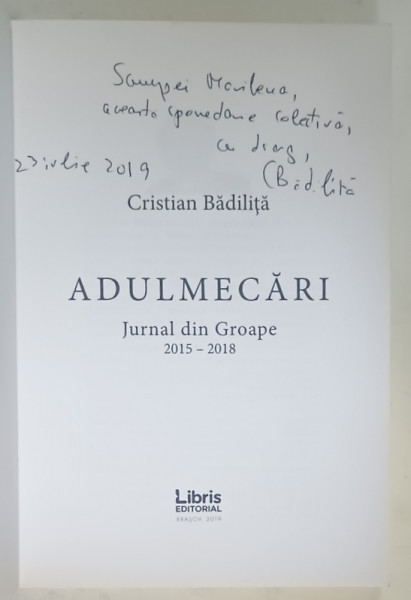 Scumpei Marilena,
această spovedanie colectivă,
cu drag,
23 iulie 2019
CBădiliță
Cristian Bădiliță
ADULMECĂRI
Jurnal din Groape
2015 – 2018
Libris
EDITORIAL
BRAȘOV, 2019